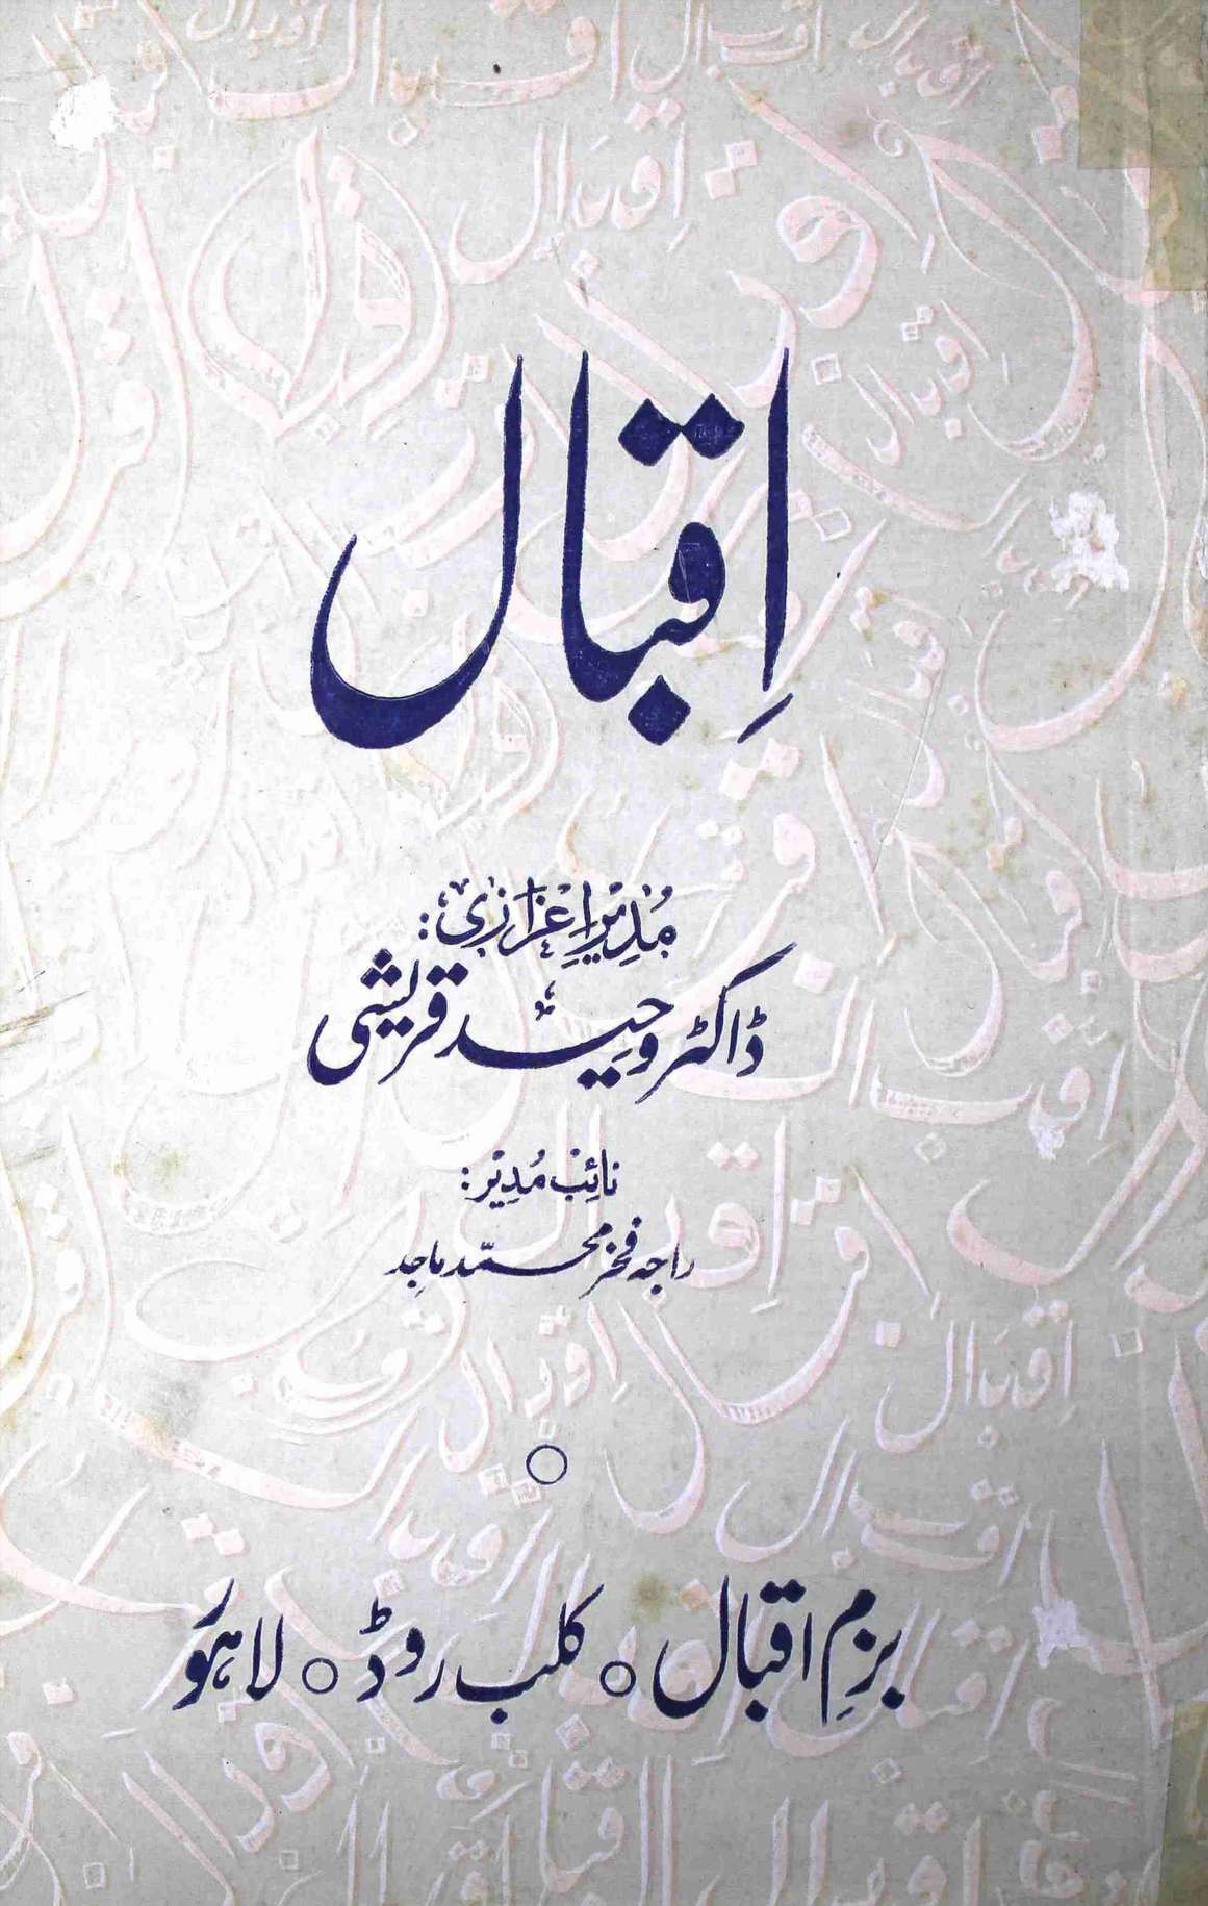 اِقبال
مُدیرِ اعزازی:
ڈاکٹر وحید قریشی
نائب مُدیر:
راجہ فخر محمّد ماجد
بزمِ اقبال ○ کلب روڈ ○ لاہور